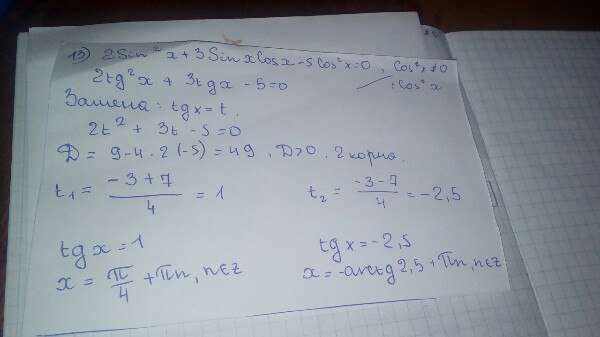 13) 2Sin²x + 3SinxCosx - 5Cos²x = 0, Cos²x ≠ 0
: Cos²x
2tg²x + 3tgx - 5 = 0
Замена: tgx = t.
2t² + 3t - 5 = 0
D = 9 - 4 · 2 (-5) = 49, D>0. 2 корня.
t₁ = (-3 + 7)/4 = 1 t₂ = (-3 - 7)/4 = -2,5
tg x = 1 tg x = -2,5
x = π/4 + πn, n∈Z x = -arctg2,5 + πn, n∈Z